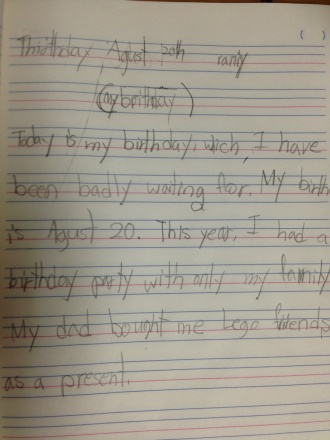 Thirthday, Agust 20th rainy
( )
(my brithday)
Today is my birthday, wich, I have
been badly waiting for. My birth
is Agust 20. This year, I had a
birthday party with only my family
My dad bought me Lego friends
as a present.